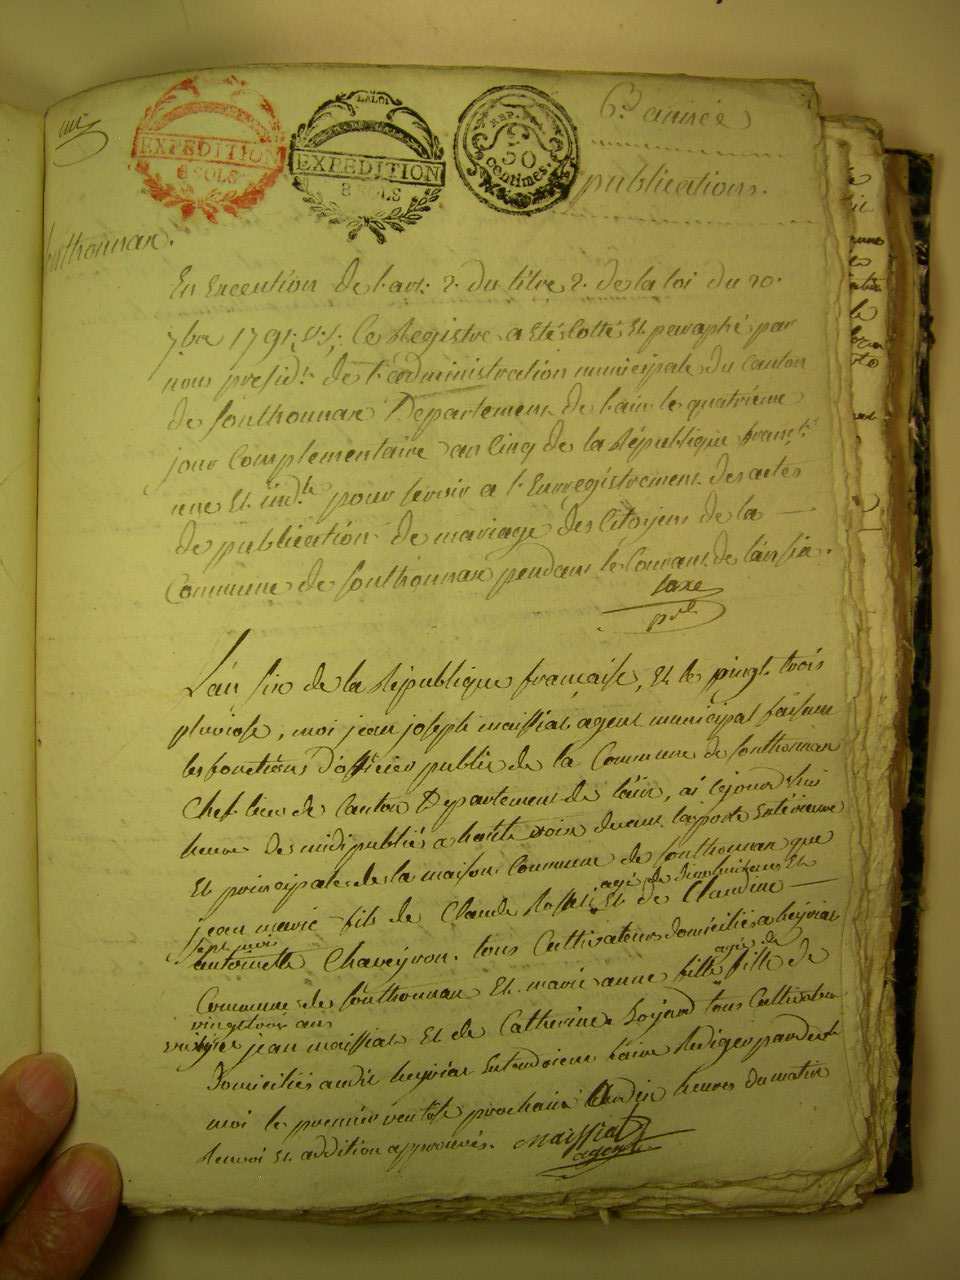 LA LOI
EXPEDITION
8 SOLS
EXPEDITION
8 SOLS
REP. F
50
centimes
6e année
publications.
Sonthonnax.
En Execution de l'art. 2. du titre 2. de la loi du 20.
7bre 1791. Ce Registre a été Cotté et paraphé par
nous presidt. de l'administration municipale du Canton
de Sonthonnax Departement de l'ain le quatrième
jour Complementaire an Cinq de la République franc.
une et indle. pour servir a l'Enregistrement des actes
de publication de mariage des Citoyens de la
Commune de Sonthonnax pendant le Courant de l'an six.
saxe
pdt.
L'an six de la République française, et le vingt trois
pluviose, moi jean joseph maissiat agent municipal faisant
les fonctions d'officier public de la Commune de Sonthonnax
Chef lieu de Canton Departement de l'ain, ai
heures de midi publié a haute voix devant la porte Extérieure
et principale de la maison Commune de Sonthonnax que
agé de dix huit ans et
jean marie fils de Claude Et de Claudine
sept mois
antoinette Chaveyron. tous Cultivateurs domiciliés a heyriat
agée de
Commune de Sonthonnax et marie anne fille de
vingt trois ans
jean maissiat et de Catherine tous Cultivateurs
Domiciliés audit heyriat faire Rediger pardevt.
moi le premier ventose prochain a dix heures du matin
Renvoi et addition approuvés. Maissiat
agent